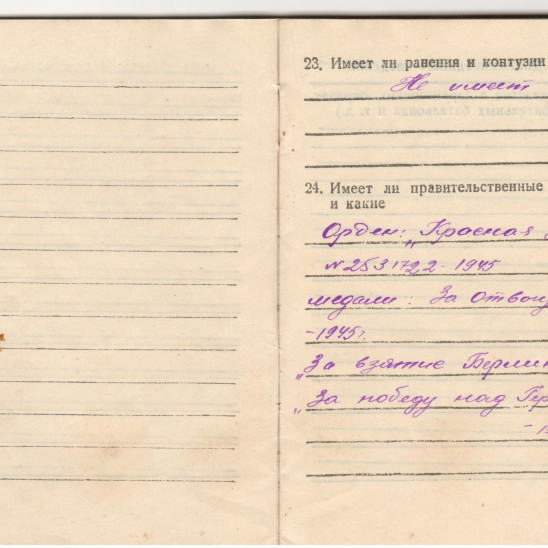 23. Имеет ли ранения и контузии
Не имеет
24. Имеет ли правительственные
и какие
Орден: „Красная З
N 2531722 - 1945
медали: За Отваг
- 1945г.
„За взятие Берлин
„За победу над Гер
- 1